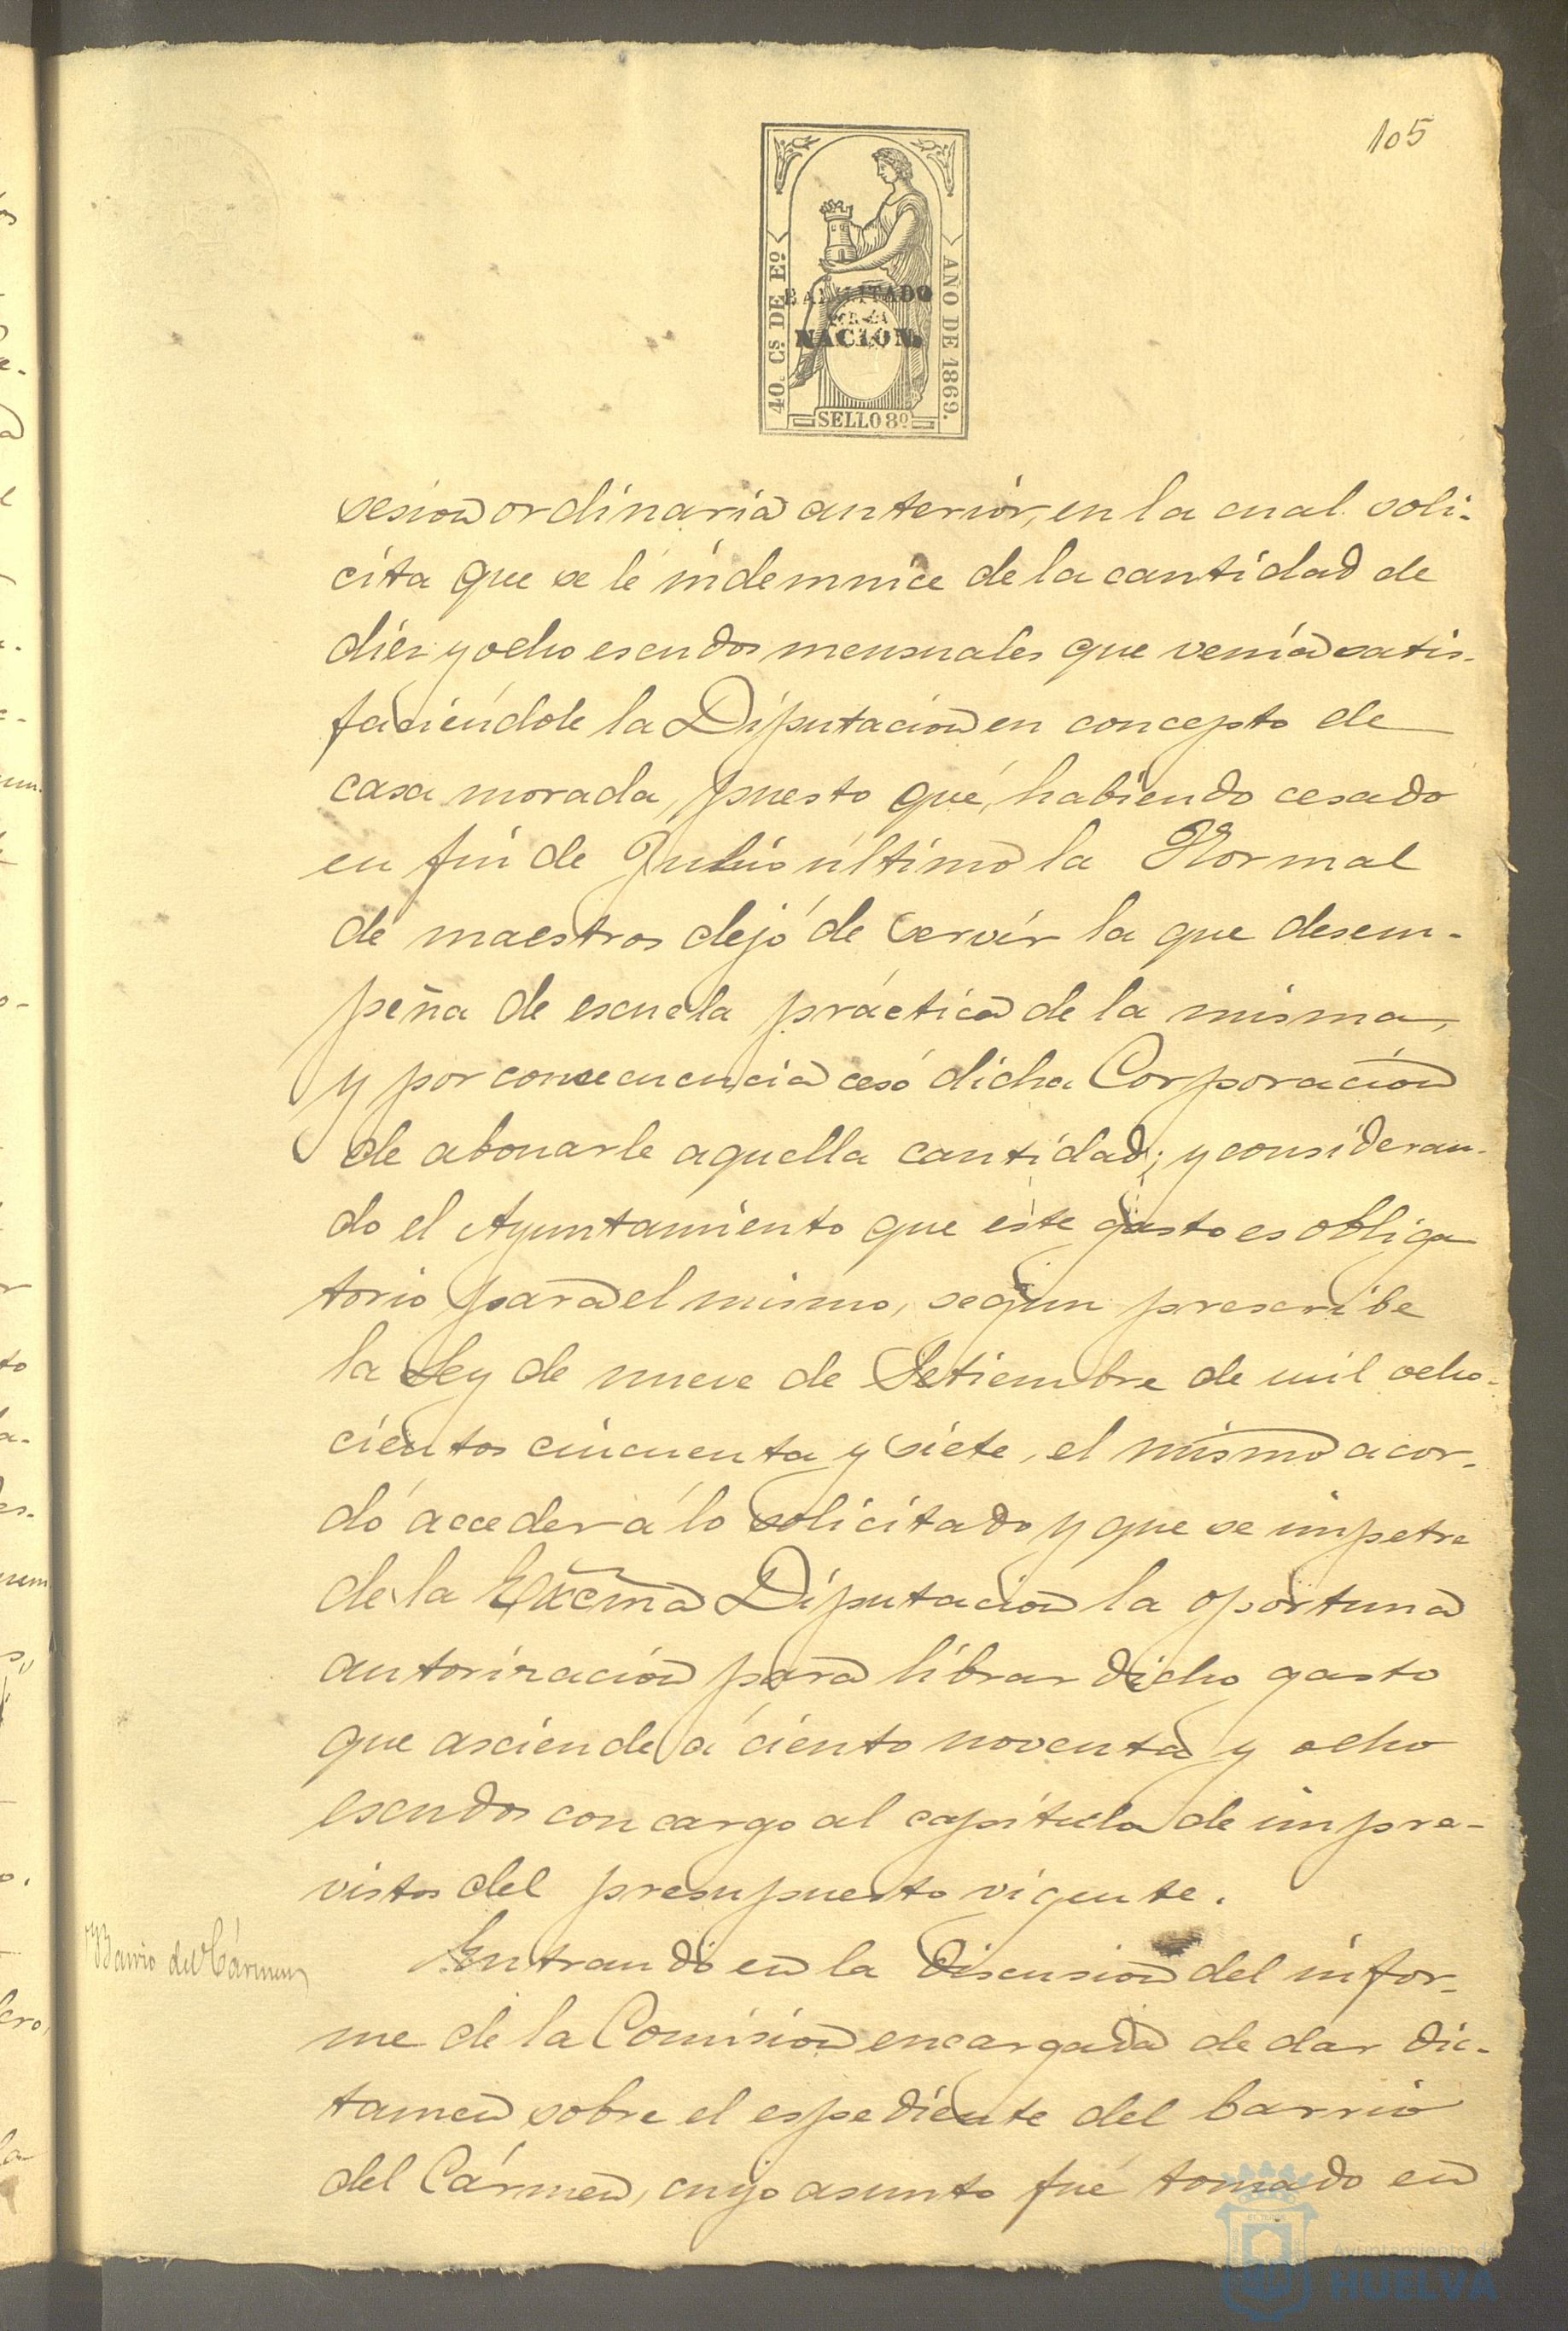 105
40. Cs. DE Eº
AÑO DE 1869.
HABILITADO
POR LA
NACION.
SELLO 8º
sesion ordinaria anterior, en la cual soli-
cita que se le indemnice de la cantidad de
diez y ocho escudos mensuales que venía satis-
faciéndole la Diputacion en concepto de
casa morada, puesto que, habiendo cesado
en fin de Julio último la Normal
de maestros dejó de servir la que desem-
peña de escuela práctica de la misma,
y por consecuencia cesó dicha Corporación
de abonarle aquella cantidad; y consideran-
do el Ayuntamiento que este gasto es obliga
torio para el mismo, segun prescribe
la Ley de nueve de Setiembre de mil ocho-
cientos cincuenta y siete, el mismo acor-
dó acceder á lo solicitado y que se impetre
de la Excma Diputacion la oportuna
autorización para librar dicho gasto
que asciende á ciento noventa y ocho
escudos con cargo al capítulo de impre-
vistos del presupuesto vigente.
Barrio del Cármen
Entrando en la discusion del infor-
me de la Comision encargada de dar dic-
tamen sobre el espediente del barrio
del Cármen, cuyo asunto fué tomado en
Ayuntamiento de
HUELVA